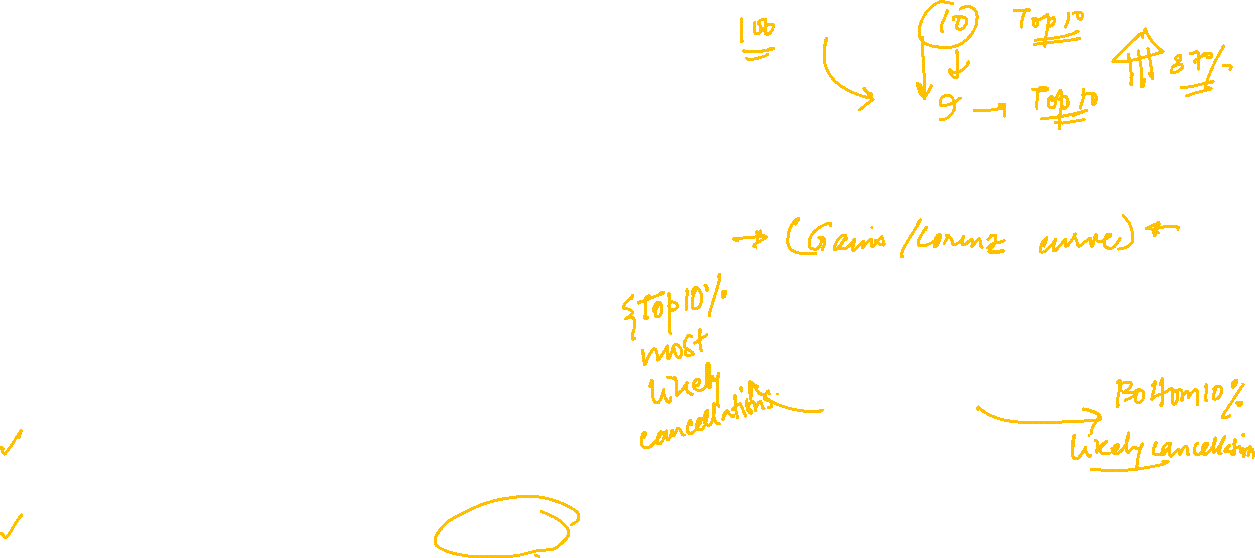 100 10 Top 10
87%
9 → Top 10
→ (Gains/Lorenz curve) ←
{Top 10%
most
likely
cancellations
Bottom 10%
likely cancellation